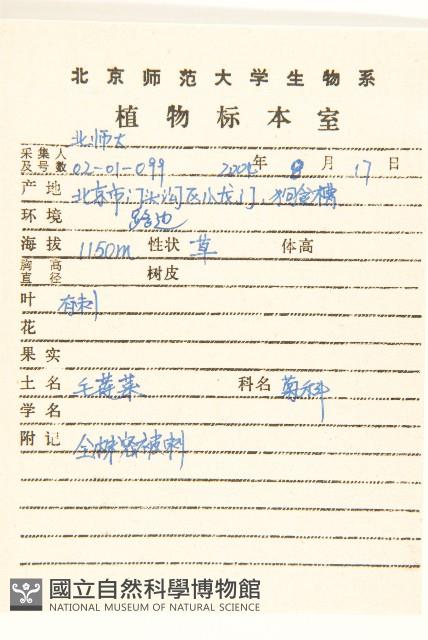 北京师范大学生物系
植物标本室
采集人及号数 北师大 02-01-099 2002年 8月 17日
产地 北京市门头沟区小龙门,
环境 路边
海拔 1150m 性状 草 体高
胸高直径 树皮
叶 有刺
花
果实
土名 毛莲菜 科名 菊科
学名
附记 全株密被刺
國立自然科學博物館
NATIONAL MUSEUM OF NATURAL SCIENCE